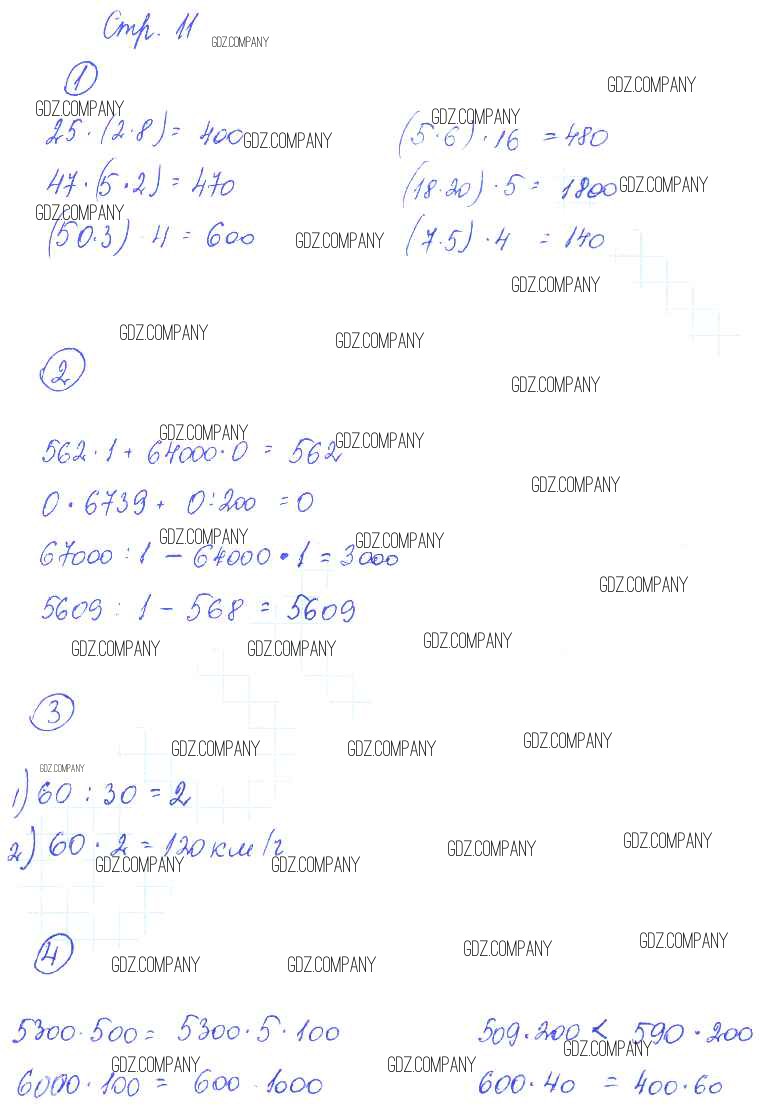 Стр. 11
GDZ.COMPANY
1
GDZ.COMPANY
GDZ.COMPANY GDZ.COMPANY
25·(2·8) = 400 GDZ.COMPANY (5·6)·16 = 480
47·(5·2) = 470 (18·20)·5 = 1800 GDZ.COMPANY
GDZ.COMPANY
(50·3)·4 = 600 GDZ.COMPANY (7·5)·4 = 140
GDZ.COMPANY
GDZ.COMPANY GDZ.COMPANY
2
GDZ.COMPANY
GDZ.COMPANY GDZ.COMPANY
562·1 + 64000·0 = 562
GDZ.COMPANY
0·6739 + 0:200 = 0
GDZ.COMPANY GDZ.COMPANY
67000:1 - 64000·1 = 3000
GDZ.COMPANY
5609:1 - 568 = 5609
GDZ.COMPANY GDZ.COMPANY GDZ.COMPANY
3
GDZ.COMPANY GDZ.COMPANY GDZ.COMPANY
GDZ.COMPANY
1) 60:30 = 2
2) 60·2 = 120 км/г
GDZ.COMPANY GDZ.COMPANY GDZ.COMPANY GDZ.COMPANY
4
GDZ.COMPANY GDZ.COMPANY GDZ.COMPANY GDZ.COMPANY
5300·500 = 5300·5·100 509·200 < 590·200
GDZ.COMPANY
GDZ.COMPANY GDZ.COMPANY
6000·100 = 600·1000 600·40 = 400·60